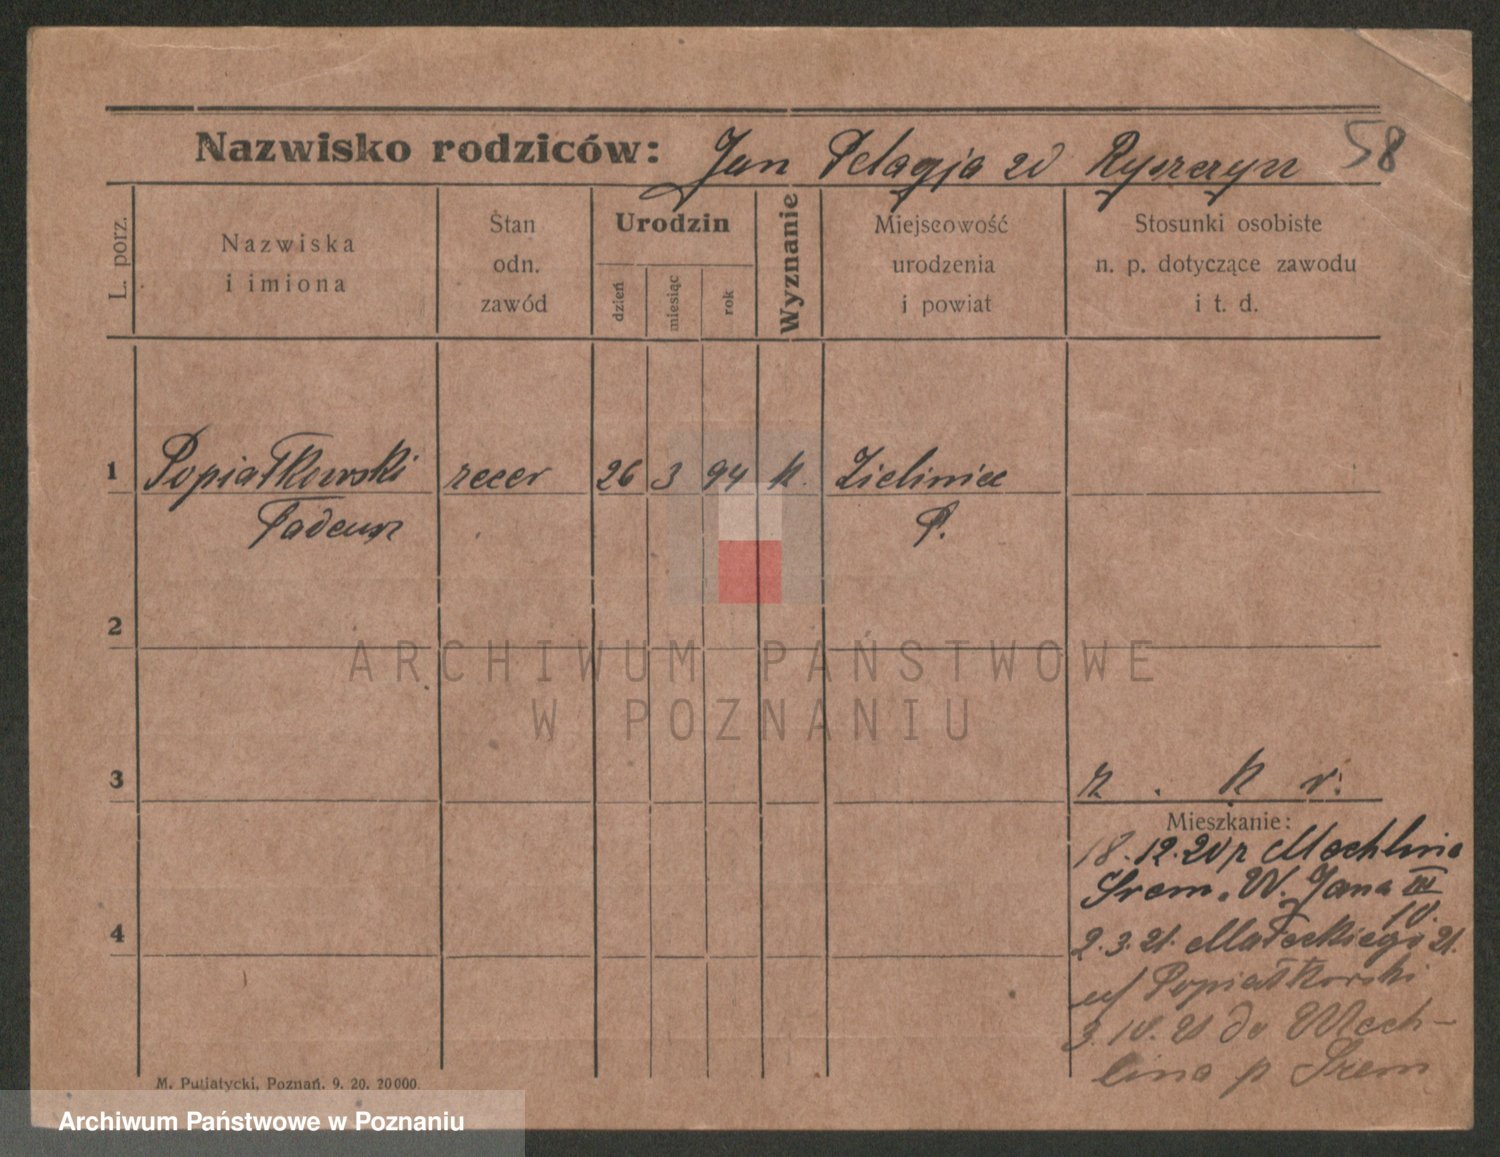 Nazwisko rodziców: Jan Pelagja zd Ryszczyn 58
L. porz.
Nazwiska
i imiona
Stan
odn.
zawód
Urodzin
dzień
miesiąc
rok
Wyznanie
Miejscowość
urodzenia
i powiat
Stosunki osobiste
n. p. dotyczące zawodu
i t. d.
1 Popiatkowski zecer 26 3 94 k. Zieliniec
Tadeusz P.
2
ARCHIWUM PAŃSTWOWE
W POZNANIU
3
k v.
Mieszkanie:
18.12.20 z Mechlina
Srem. W. Jana III
10.
4
2.3.21. Małeckiego 21.
u/ Popiatkowski
3.IV.21 do Mech-
lina p Srem
M. Putiatycki, Poznań. 9. 20. 20000.
Archiwum Państwowe w Poznaniu